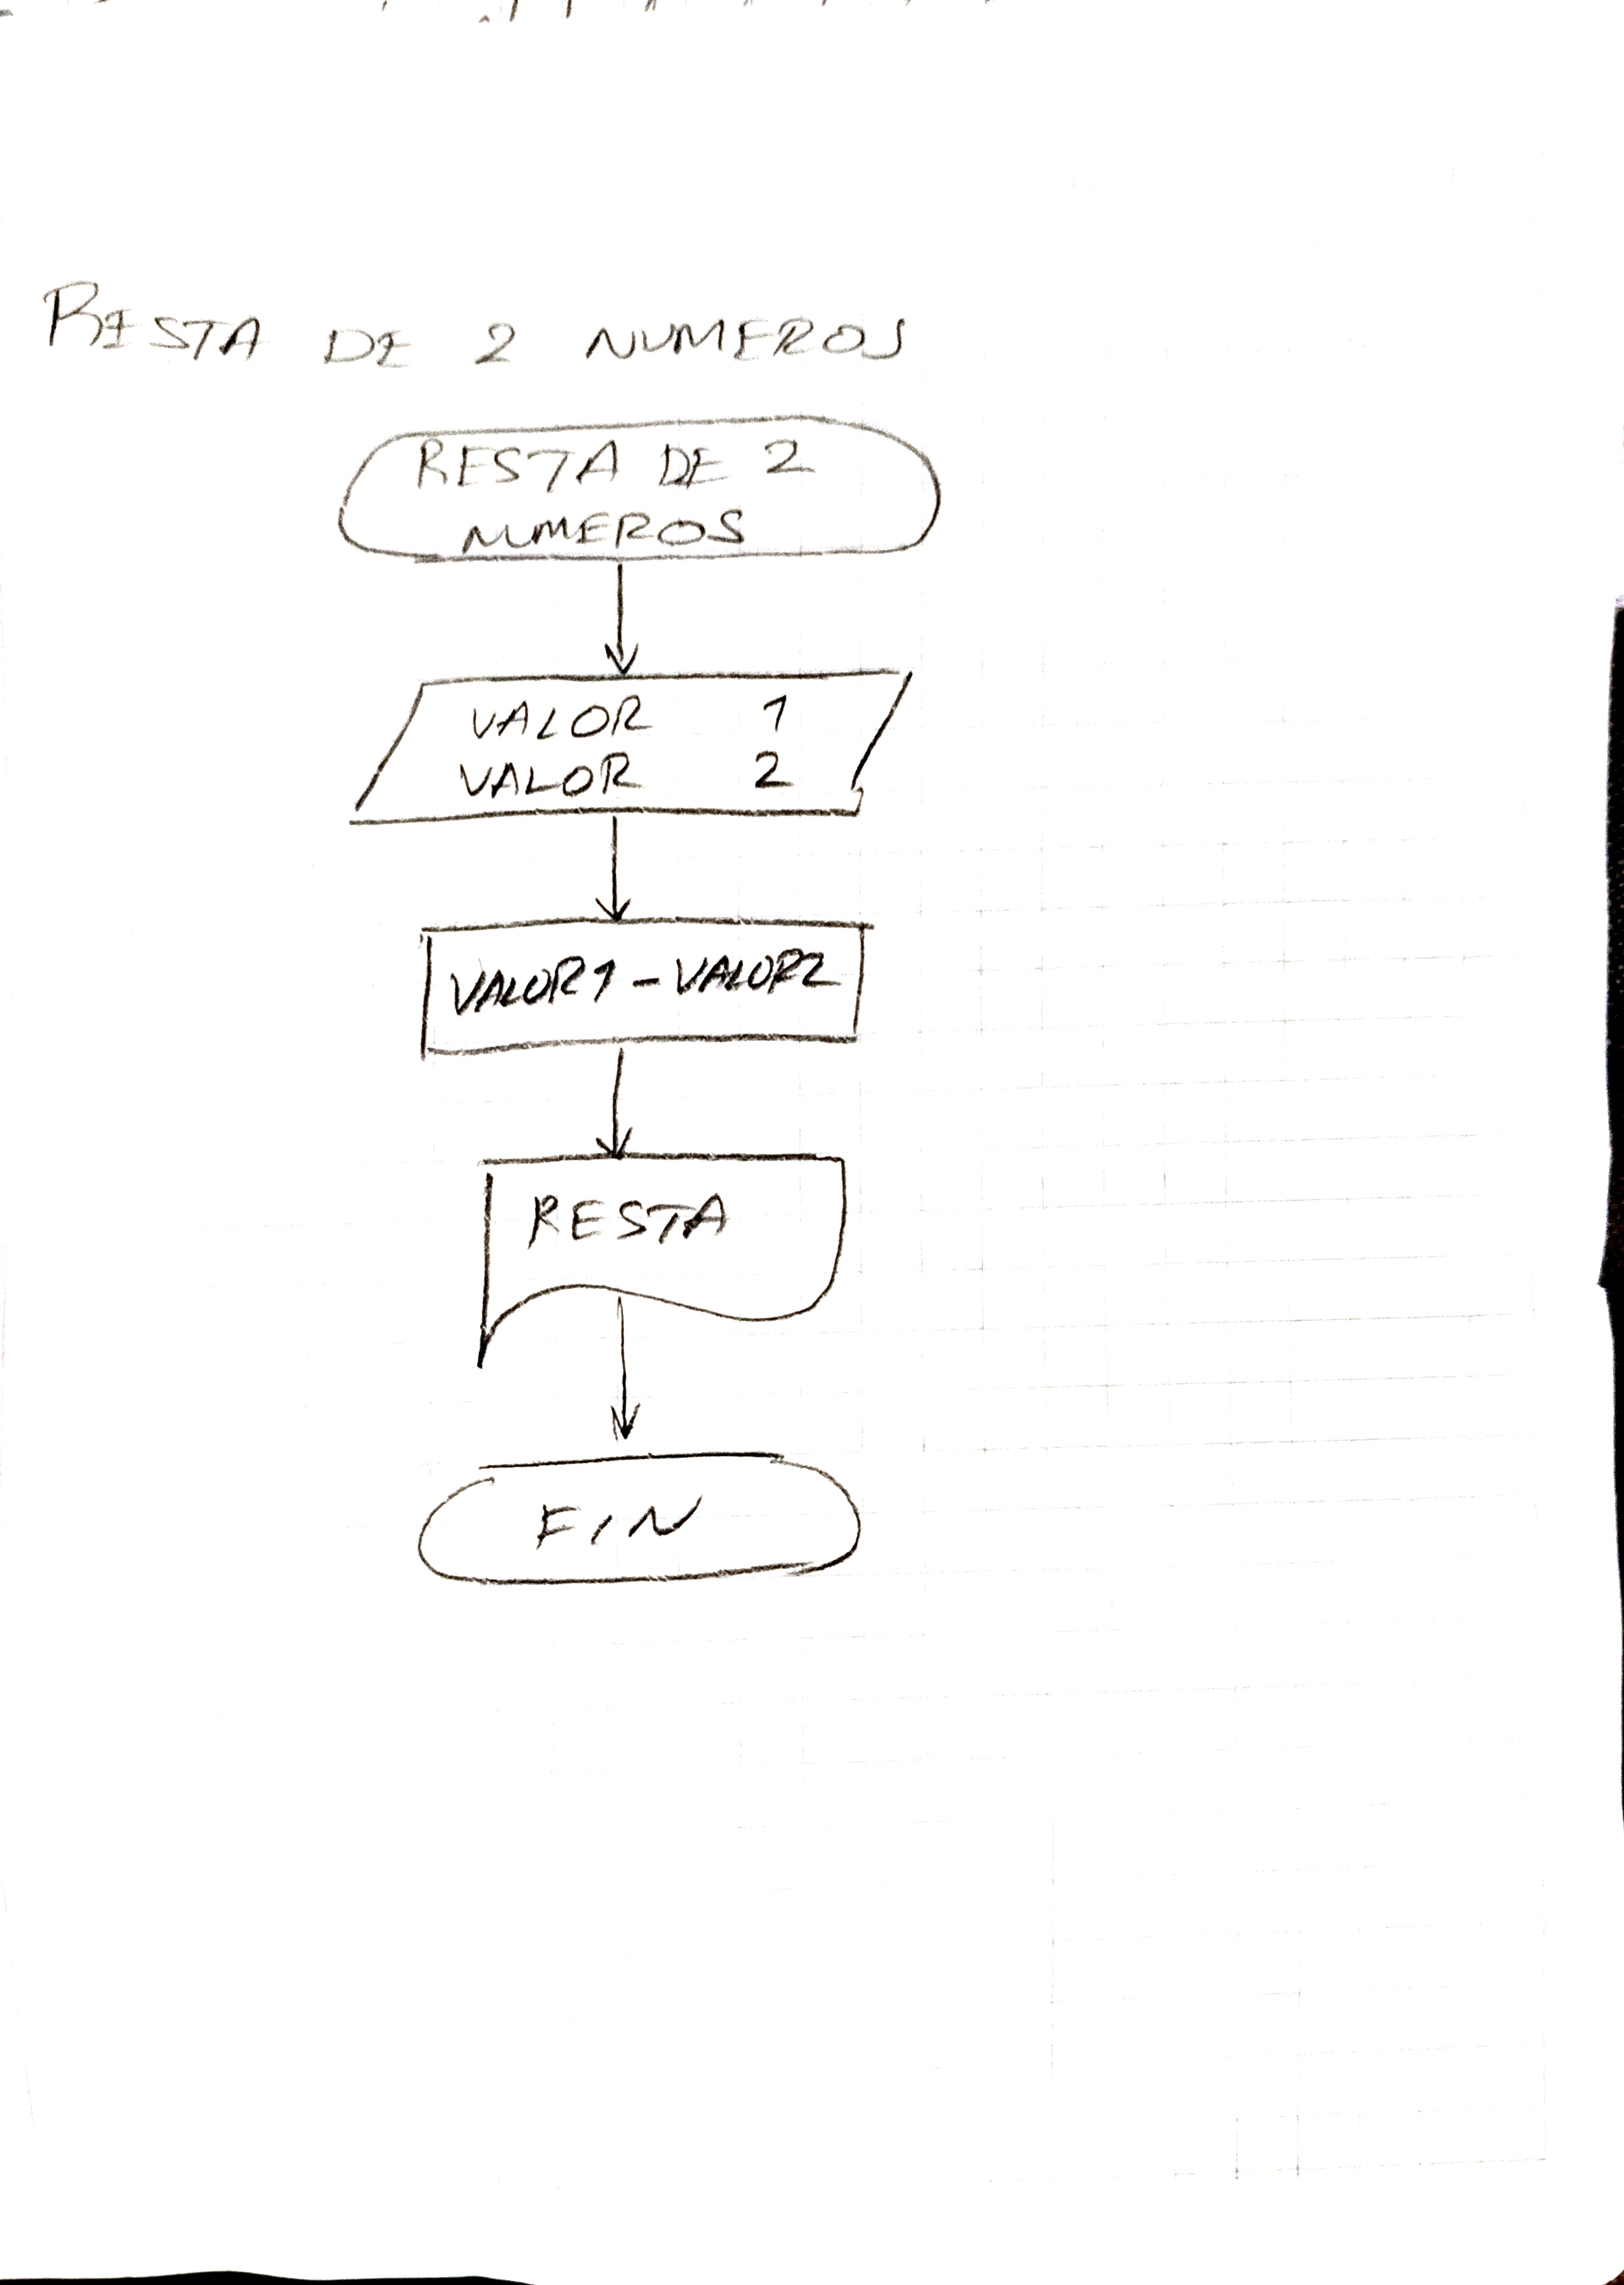 RESTA DE 2 NUMEROS
RESTA DE 2
NUMEROS
VALOR 1
VALOR 2
VALOR1-VALOR2
RESTA
FIN